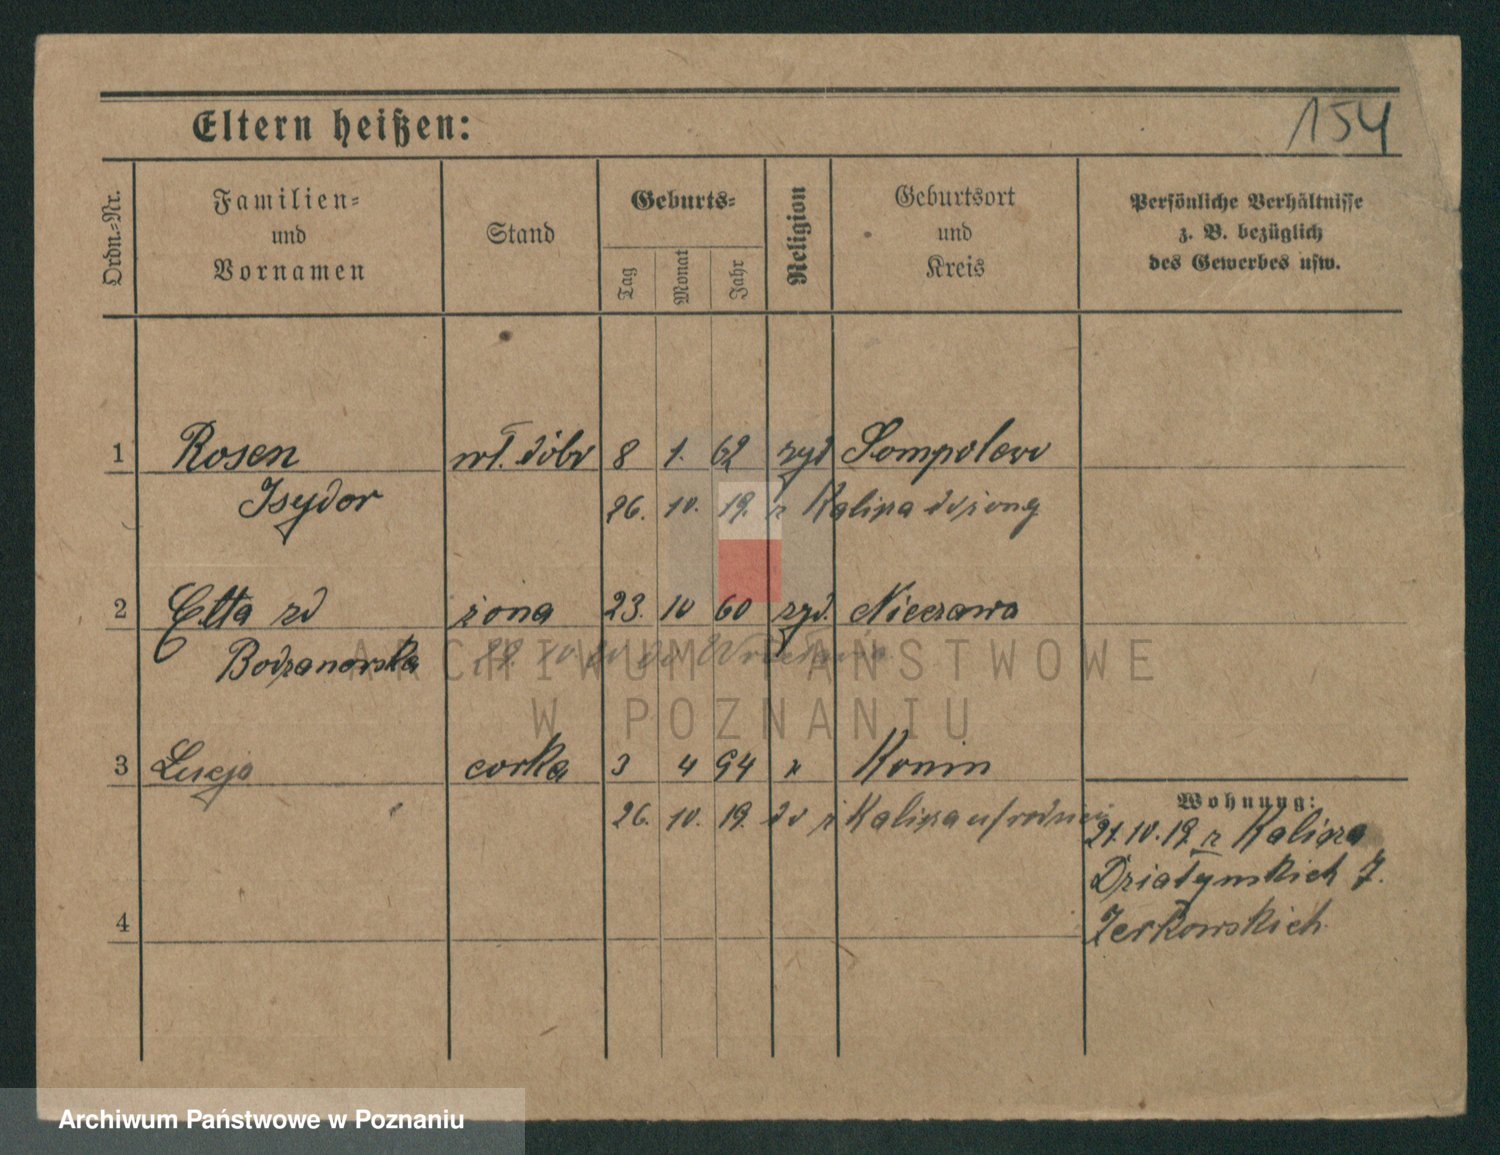 154
Eltern heißen:
Ordn.-Nr.
Familien- und Vornamen
Stand
Geburts-
Tag
Monat
Jahr
Religion
Geburtsort und Kreis
Persönliche Verhältnisse z. B. bezüglich des Gewerbes usw.
1 Rosen wł. dóbr 8 1. 62 żyd Sompolew
Isydor 26. 10. 19. z Kalisza do żony
2 Etta zd żona 23. 10 60 żyd. Nieszawa
Bodzanowska
3 Lucja corka 3 4 94 " Konin
26. 10. 19. do z Kalisza
Wohnung:
21.10.19 z Kalisza
Działyńskich 7.
Zerkowskich
4
ARCHIWUM PAŃSTWOWE
W POZNANIU
Archiwum Państwowe w Poznaniu